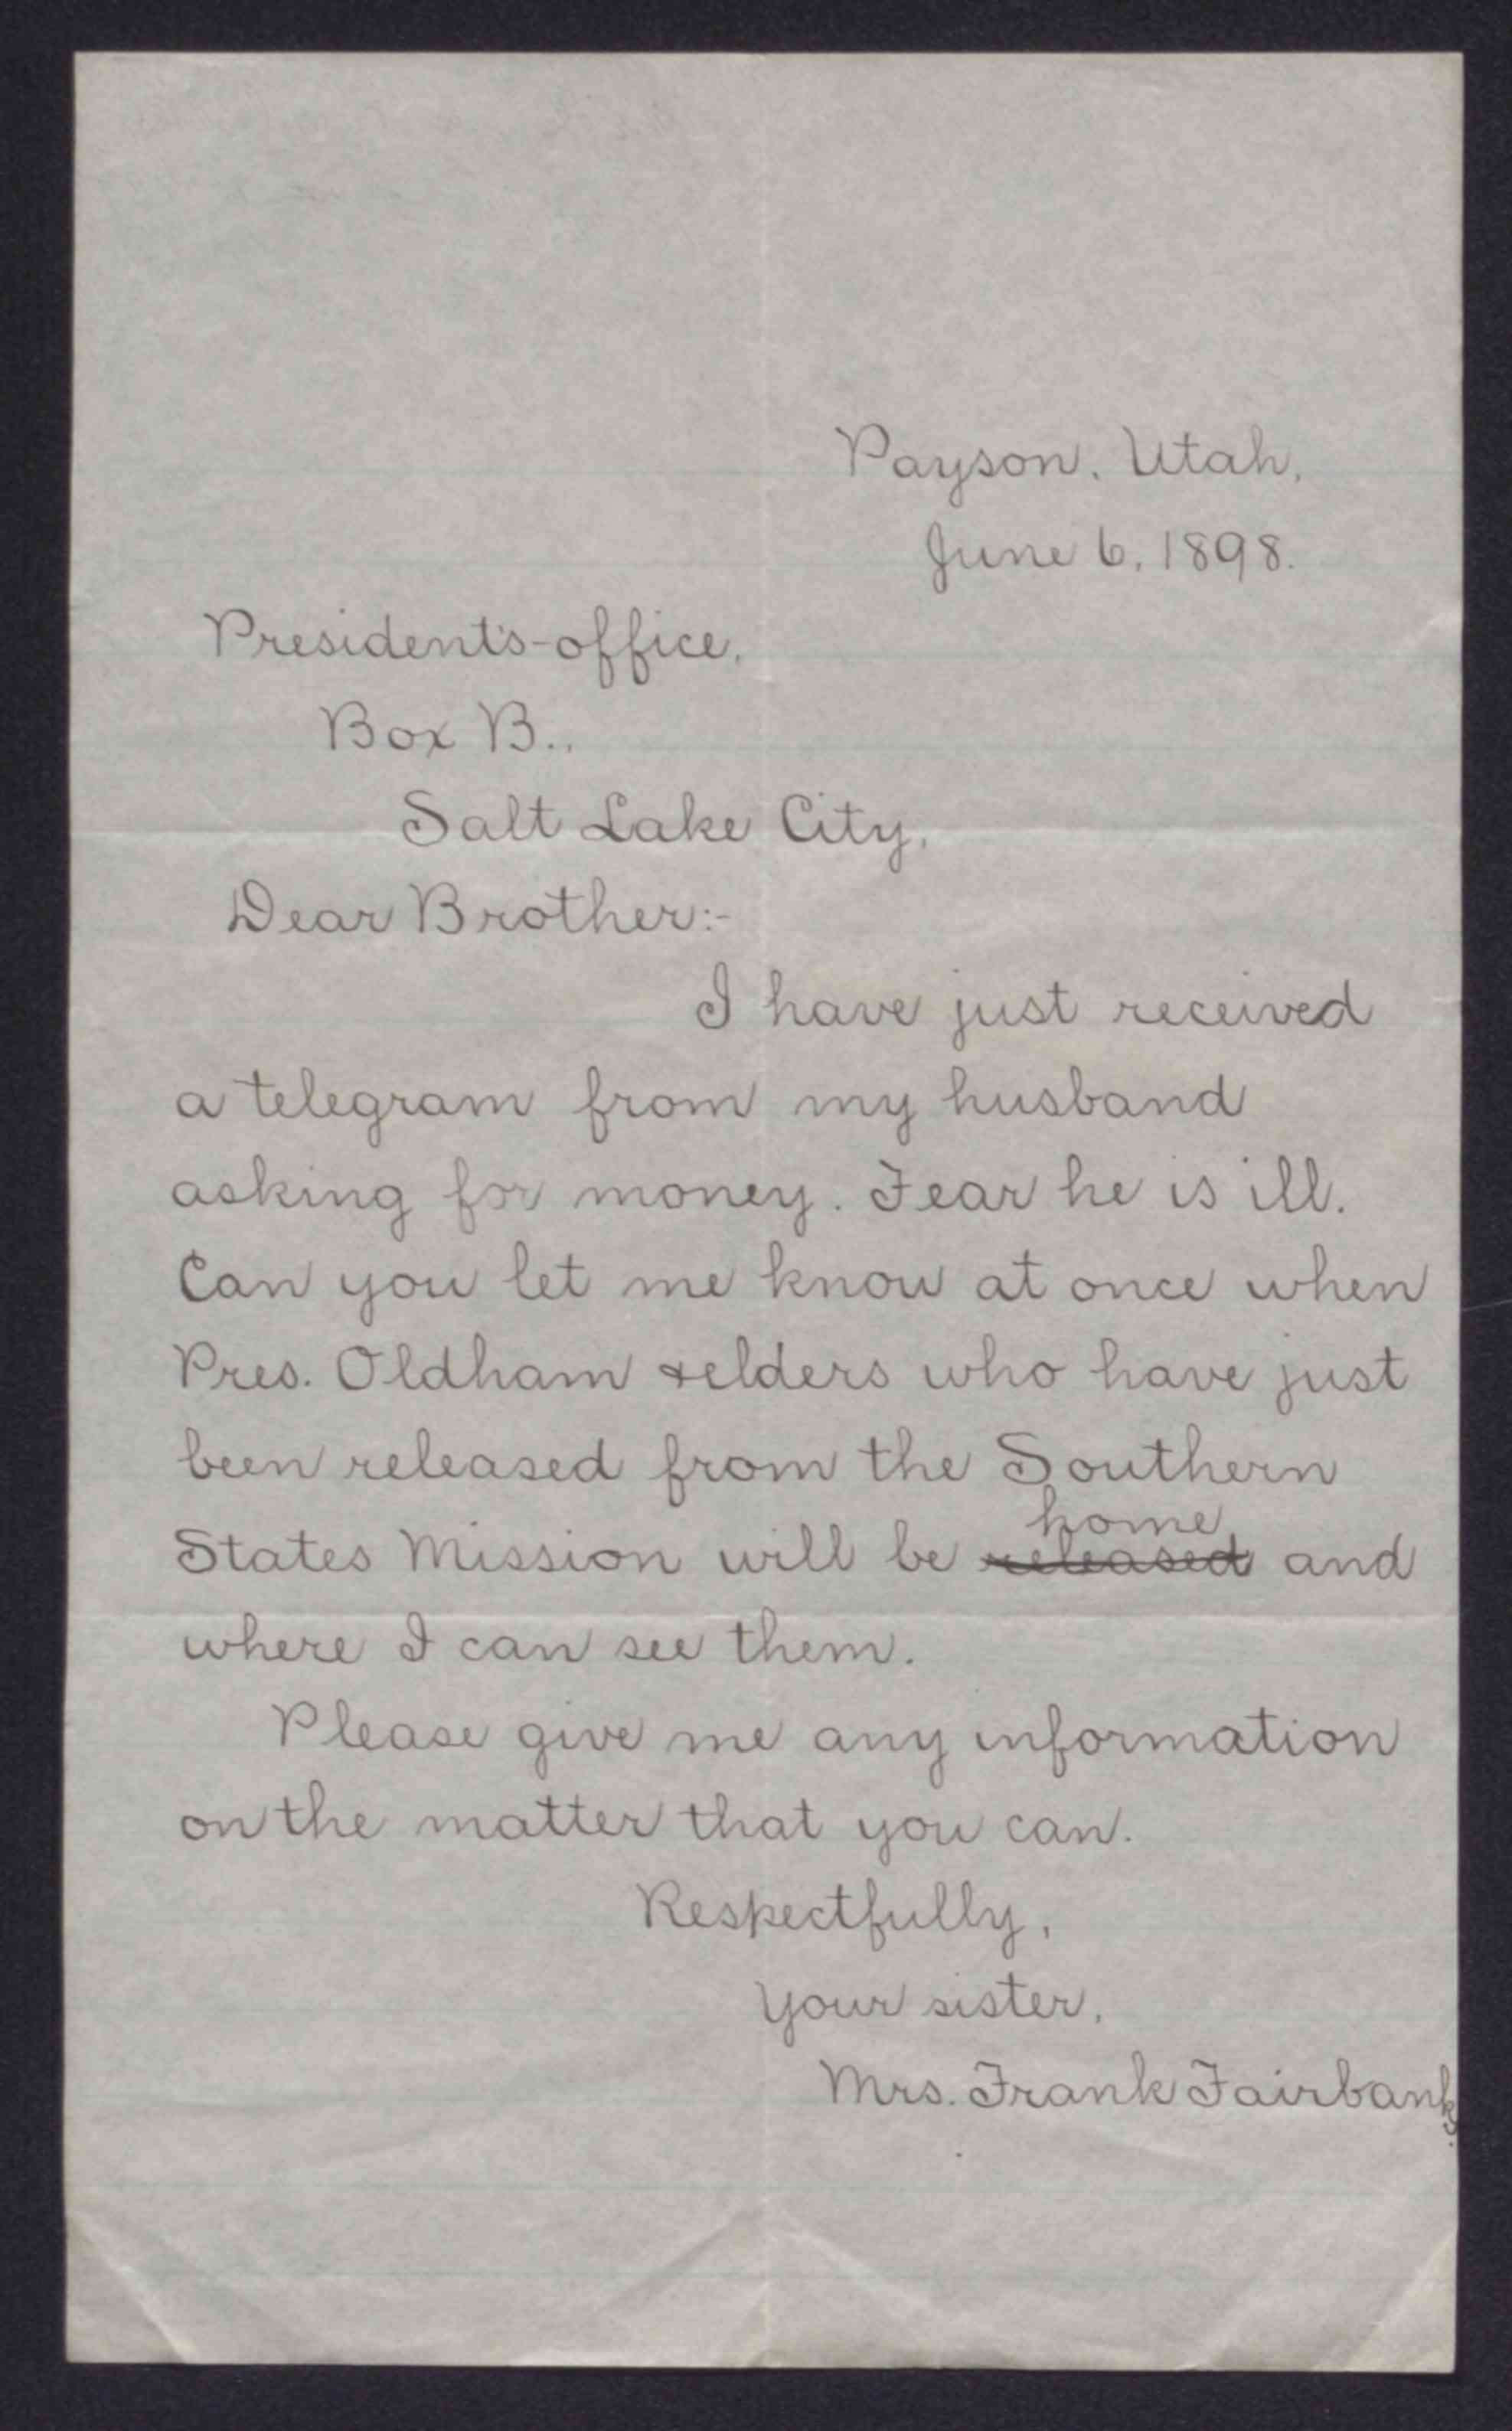 Payson, Utah,
June 6, 1898.
President's-office,
Box B.,
Salt Lake City,
Dear Brother:-
I have just received
a telegram from my husband
asking for money. Fear he is ill.
Can you let me know at once when
Pres. Oldham & elders who have just
been released from the Southern
home
States Mission will be released and
where I can see them.
Please give me any information
on the matter that you can.
Respectfully,
Your sister,
Mrs. Frank Fairbanks.